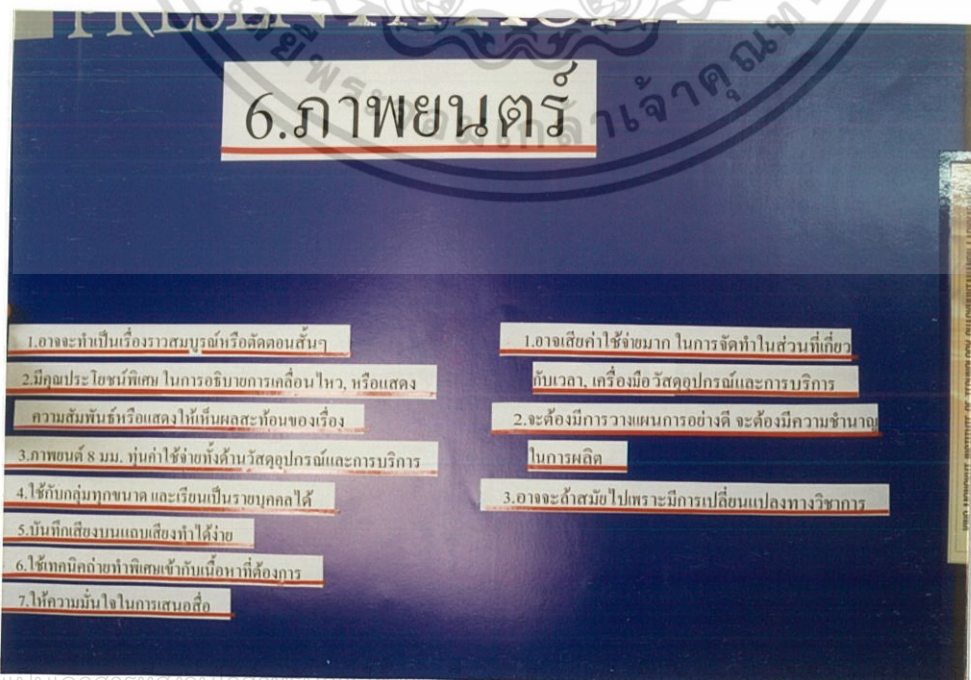 PRESENTATION
6.ภาพยนตร์
1.อาจจะทำเป็นเรื่องราวสมบูรณ์หรือตัดตอนสั้นๆ
2.มีคุณประโยชน์พิเศษ ในการอธิบายการเคลื่อนไหว, หรือแสดง
ความสัมพันธ์หรือแสดงให้เห็นผลสะท้อนของเรื่อง
3.ภาพยนต์ 8 มม. ทุ่นค่าใช้จ่ายทั้งด้านวัสดุอุปกรณ์และการบริการ
4.ใช้กับกลุ่มทุกขนาด และเรียนเป็นรายบุคคลได้
5.บันทึกเสียงบนแถบเสียงทำได้ง่าย
6.ใช้เทคนิคถ่ายทำพิเศษเข้ากับเนื้อหาที่ต้องการ
7.ให้ความมั่นใจในการเสนอสื่อ
1.อาจเสียค่าใช้จ่ายมาก ในการจัดทำในส่วนที่เกี่ยว
กับเวลา, เครื่องมือ วัสดุอุปกรณ์และการบริการ
2.จะต้องมีการวางแผนการอย่างดี จะต้องมีความชำนาญ
ในการผลิต
3.อาจจะล้าสมัยไปเพราะมีการเปลี่ยนแปลงทางวิชาการ